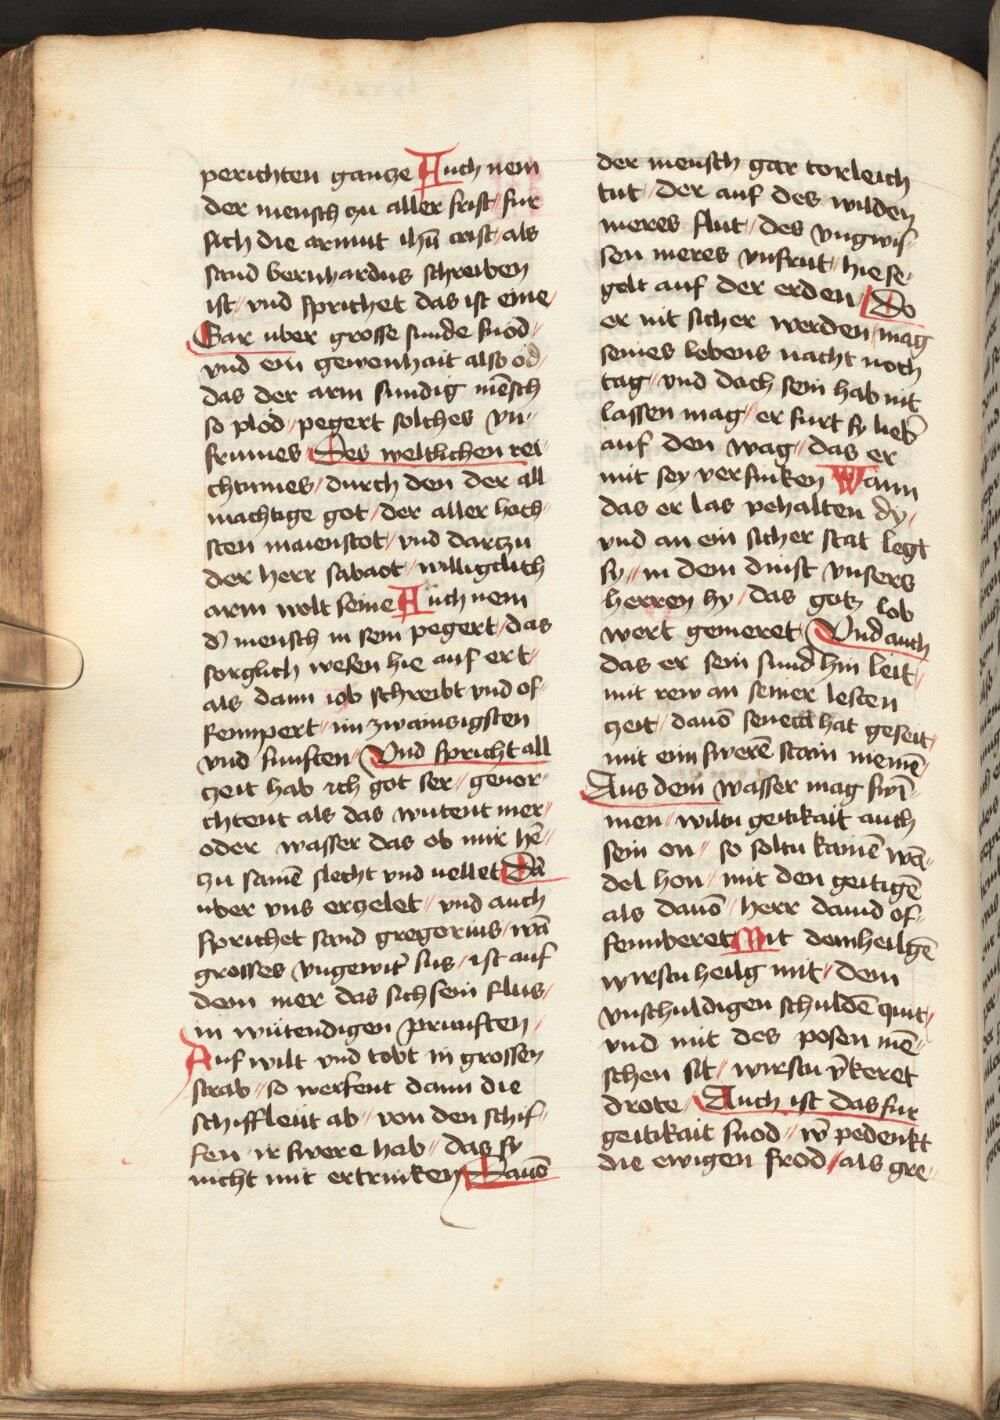 perichten gancze Auch nem
der mensch zu aller frist / fur
sich die armut ihũ crist / als
sand bernhardus schreiben
ist / vnd sprichet das ist eine /
Gar uber grosse sunde snod //
vnd ein gewenhait also od /
das der arm sundig mẽsch
so plod / pegert solches vn //
frumes / Des weltlichen rei
chtumes / durch den der all
machtige got / der aller hoch /
sten maienstot / vnd darczu
der herr sabaot / williglich
arm wolt seine Auch nem
d᷑ mensch in sem pegert / das
sorglich wesen hie auf ert /
als dann iob schreibt vnd of /
fennpert / im zwainzigsten
vnd funften / Vnd spricht all
czeit hab ich got ser / gevor //
chtent als das wutent mer /
oder wasser das ob mir hẽ /
zu samẽ slecht vnd vellet Dã
uber vns erczelet / vnd auch
sprichet sand gregorius / wã
grosses vngewit᷑ sus / ist auf
dem mer das sich sein flus /
in wutendigen prunften /
Auf wilt vnd tobt in grossen
strab / so werfent dann die
schiffleut ab / von den schif /
fen ir swere hab / das sy
nicht mit ertrinken Dauõ
der mensch gar torleich
tut / der auf des wilden
meres flut / des vngwis /
sen meres vnfrut / hie se /
gelt auf der erden / Do
er nit sicher werden mag
seines lebens nacht noch
tag / vnd doch sein hab nit
lassen mag / er furt sy lieb᷑
auf den wag / das er
mit sey versinken Wann
das er las pehalten dy /
vnd an ein sicher stat legt
sy // in dem dinst vnsers
herren hy / das gotz lob
wert gemeret / Vnd auch
das er sein sund hin leit /
mit rew an seiner lesten
zeit / dauõ seneca hat geseit /
mit eim swerẽ stain niemẽ /
Aus dem wasser mag swĩ
men / wiltu geitikait auch
sein on / so soltu kainẽ wã /
del hon / mit den geitigẽ
als dauõ / herr dauid of /
fennberet Mit dem heilgẽ
wirstu heilg mit / dem
vnschuldigen schuldẽ quit /
vnd mit des posen mẽ /
schen sit / wirstu v᷑keret
drote / Auch ist das fur
geitikait snod / w᷑ pedenkt
die ewigen frod / als gre /